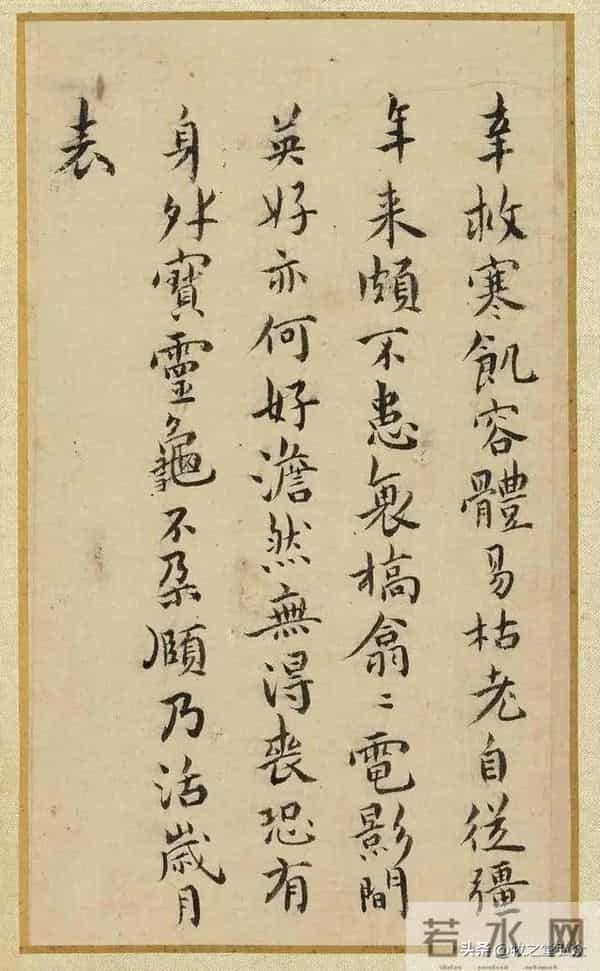 辛救寒飢容體易枯老自從彊
年来頗不患衰槁翕〻電影間
英好亦何好澹然無得喪恐有
身外寶靈龜不朵頤乃活歲月
表
若水网
头条 @牧之